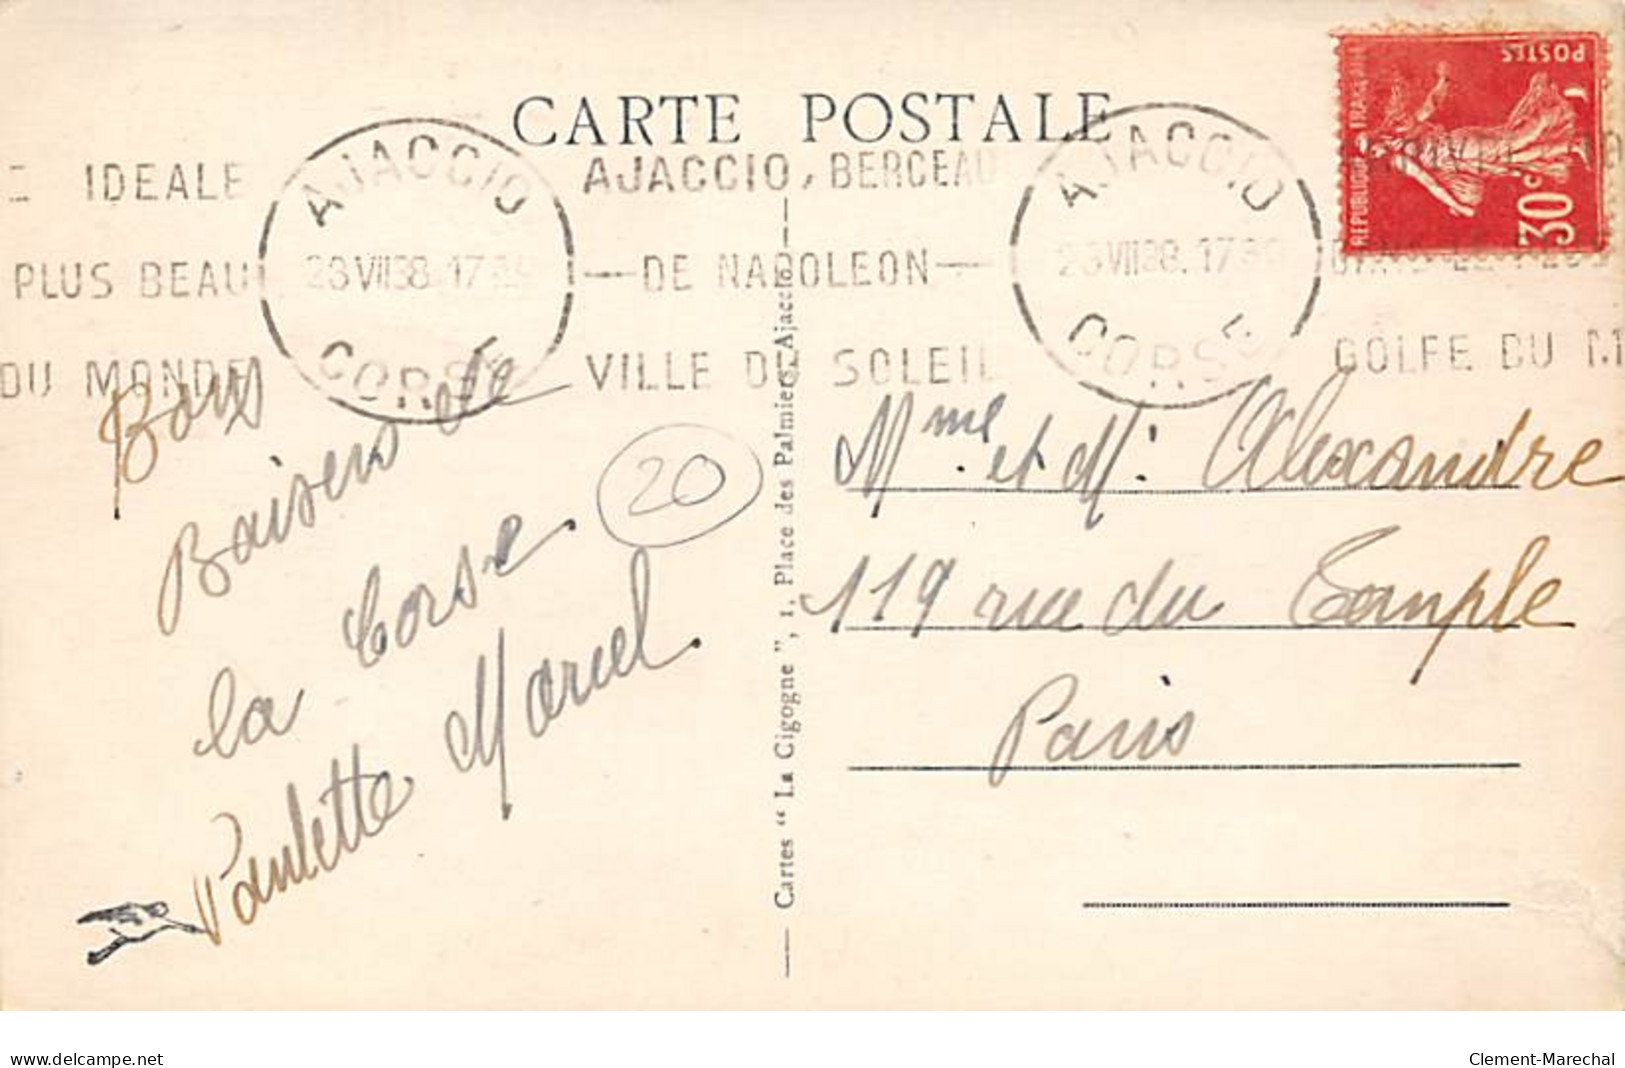 CARTE POSTALE
POSTES
REPUBLIQUE FRANÇAISE
30c
IDEALE
PLUS BEAU
DU MONDE
AJACCIO
28 VII 38. 17
CORSE
AJACCIO, BERCEAU
— DE NAPOLEON —
VILLE DU SOLEIL
AJACCIO
28 VII 38. 17
CORSE
GOLFE DU M
Bons
Baisers de
la Corse.
Paulette Marcel.
20
Cartes “ La Cigogne ”, 1, Place des Palmiers, Ajaccio
Mme. et Mr. Alexandre
119 rue du Temple
Paris
www.delcampe.net
Clement-Marechal